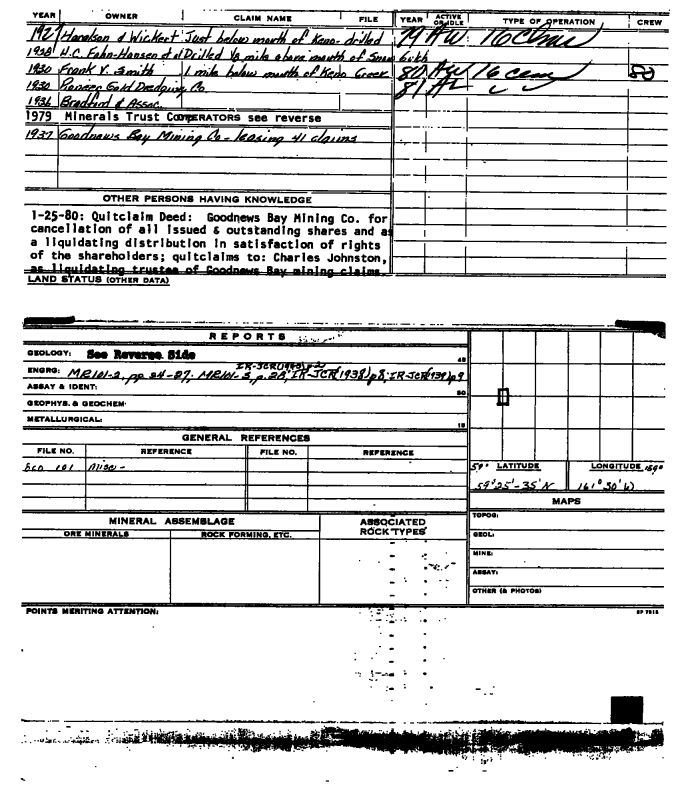 YEAR OWNER CLAIM NAME FILE YEAR ACTIVE OR IDLE TYPE OF OPERATION CREW
1927 & Wickert Just below mouth of Keno- drilled 79 AW 16 Clms
1938 N.C. Fahn-Hansen Drilled ½ mile above mouth of
1930 Frank Y. Smith 1 mile below mouth of Keno Creek 80 AW 16
1930 Pioneer Gold Dredging Co 81
1936 Bradford & Assoc.
1979 Minerals Trust Co OPERATORS see reverse
1937 Goodnews Bay Mining Co - leasing 41 claims
OTHER PERSONS HAVING KNOWLEDGE
1-25-80: Quitclaim Deed: Goodnews Bay Mining Co. for
cancellation of all issued & outstanding shares and as
a liquidating distribution in satisfaction of rights
of the shareholders; quitclaims to: Charles Johnston,
as liquidating trustee of Goodnews Bay mining claims.
LAND STATUS (OTHER DATA)
REPORTS
GEOLOGY: See Reverse Side
ENGRG: MR101-2, pp 24-27; MR101-3, p.28; IR-JCR(1938)p8; IR-JCR(1939)p9
ASSAY & IDENT:
GEOPHYS. & GEOCHEM:
METALLURGICAL:
GENERAL REFERENCES
FILE NO. REFERENCE FILE NO. REFERENCE
101 Misc -
59° LATITUDE LONGITUDE 159°
59°25'-35'N 161°30'W
MAPS
MINERAL ASSEMBLAGE ASSOCIATED ROCK TYPES
ORE MINERALS ROCK FORMING, ETC.
TOPOG:
GEOL:
MINE:
ASSAY:
OTHER (& PHOTOS)
POINTS MERITING ATTENTION: